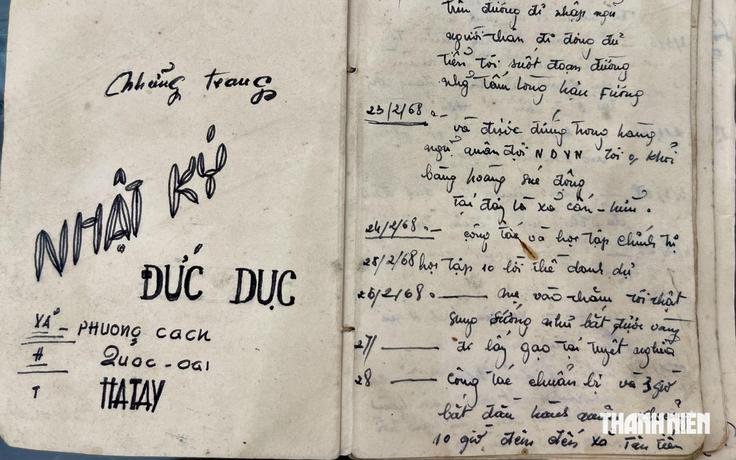 Những trang
NHẬT KÝ
ĐỨC DỤC
XÃ - PHƯỢNG CÁCH
H QUỐC-OAI
T HATAY
trên đường đi nhập ngũ
người thân đi đông đủ
tiễn tôi suốt đoạn đường
nhớ tấm lòng hậu Fương
23/2/68 -
và được đứng trong hàng
ngũ quân đội NDVN tôi khỏi
bàng hoàng xúc động
tại đây là xã cấn-hữu.
24/2/68 - công tác và học tập chính trị
25/2/68 học tập 10 lời thề danh dự
26/2/68 - mẹ vào thăm tôi thật
sung sướng như bắt được vàng
27/ - đi lấy gạo tại tuyết nghĩa
28 - công tác chuẩn bị và 3 giờ
bắt đầu hành quân
10 giờ đêm đến xã Tân Tiến
THANH NIÊN